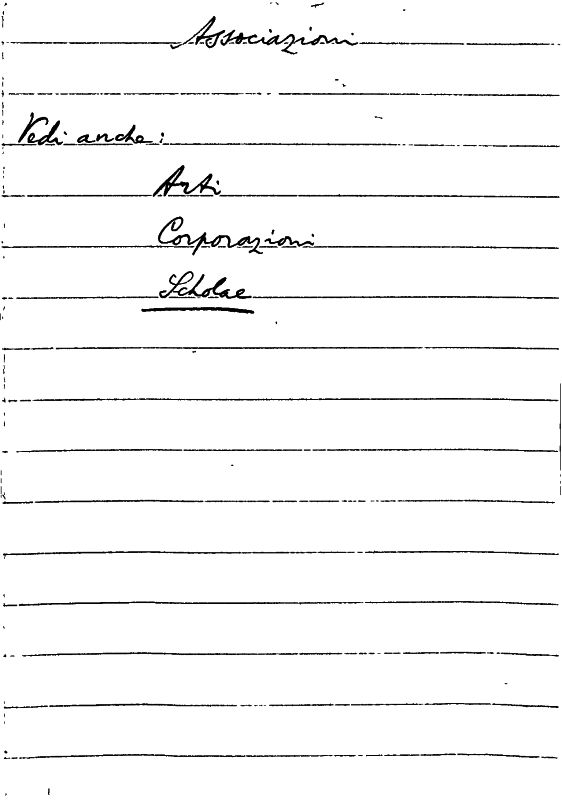 Associazioni
Vedi anche:
Arti
Corporazioni
Scholae